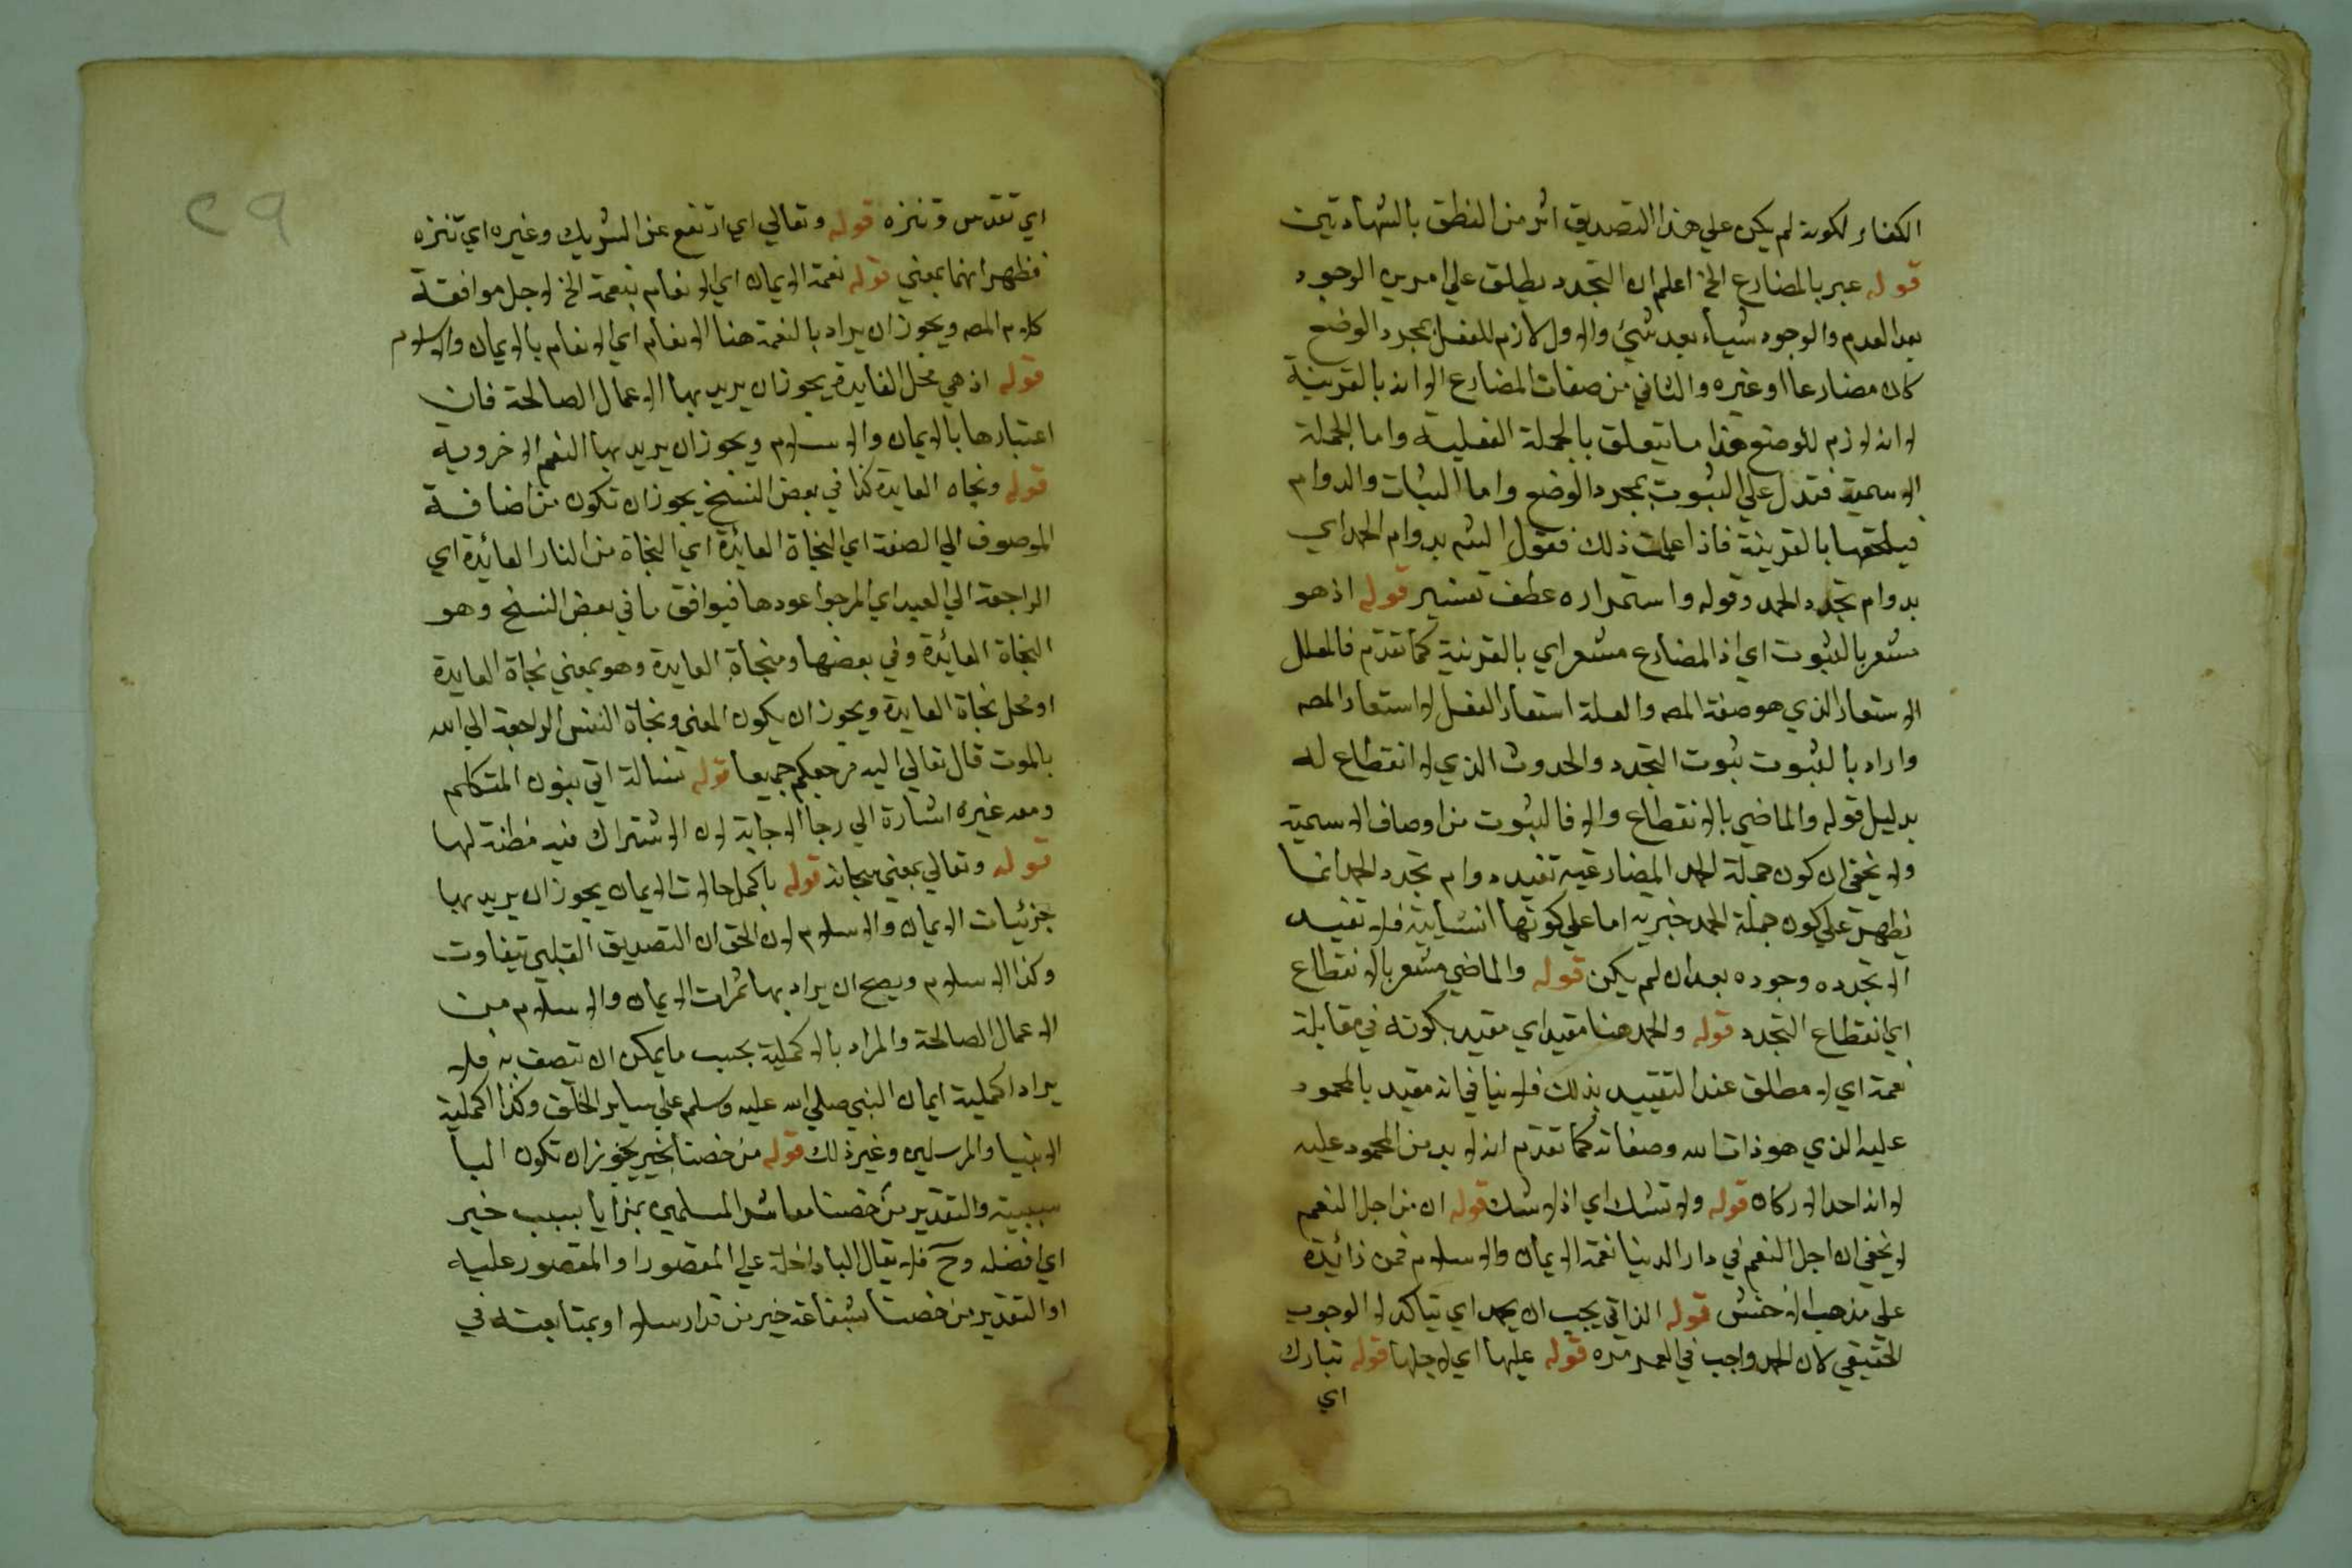 الكفار لكونه لم يكن علي هذا التصديق اثر من النطق بالشهادتين
قوله عبر بالمضارع الخ اعلم ان التجدد يطلق علي امرين الوجود
بعد العدم والوجود شياء بعد شيئ والاول لازم للفعل بمجرد الوضع
كان مضارعا او غيره والثاني من صفات المضارع الا انه بالقرينة
لا انه لازم للوضع هذا ما يتعلق بالجملة الفعلية واما الجملة
الاسمية فتدل علي الثبوت بمجرد الوضع واما الثبات والدوام
فيلحقها بالقرينة فاذا علمت ذلك فقول الشم بدوام الحمد اي
بدوام تجدد الحمد وقوله واستمراره عطف تفسير قوله اذ هو
مشعر بالثبوت اي اذ المضارع مشعر اي بالقرينة كما تقدم فالمعلل
الاستعار الذي هو صفة المصه والعلة استعار الفعل لا استعار المصه
واراد بالثبوت ثبوت التجدد والحدوث الذي لا انقطاع له
بدليل قوله والماضي بالانقطاع والا فالثبوت من اوصاف الاسمية
ولا يخفي ان كون جملة الحمد المضارعية تفيد دوام تجدد الحمد انما
يظهر علي كون جملة الحمد خبرية اما علي كونها انشاييه فلا تفيد
الا تجدده وجوده بعد ان لم يكن قوله والماضي مشعر بالانقطاع
اي انقطاع التجدد قوله والحمد هنا مقيد اي مقيد بكونه في مقابلة
نعمة اي لا مطلق عند التقييد بذلك فلا ينافي انه مقيد بالمحمود
عليه الذي هو ذات الله وصفاته كما تقدم انه لا بد من المحمود عليه
لا انه احد الاركان قوله ولا تشك اي اذ لا شك قوله ان من اجل النعم
لا يخفي ان اجل النعم في دار الدنيا نعمة الايمان والاسلام فمن زائدة
علي مذهب الاخفش قوله الذاتي يجب ان يحمد اي يتاكد لا الوجوب
الحقيقي لان الحمد واجب في العمر مرة قوله عليها اي لاجلها قوله تبارك
اي
٢٩
اي تقدس وتنزه قوله وتعالي اي ارتفع عن الشريك وغيره اي تنزه
فظهر انهما بمعني قوله نعمة الايمان اي الانعام بنعمة الخ لاجل موافقة
كلام المصه ويجوز ان يراد بالنعمة هنا الانعام اي الانعام بالايمان والاسلام
قوله اذ هي محل الفايدة يجوز ان يريد بها الاعمال الصالحة فان
اعتبارها بالايمان والاسلام ويجوز ان يريد بها النعم الاخروية
قوله ونجاه العايدة كذا في بعض النسخ يجوز ان تكون من اضافة
الموصوف الي الصفة اي النجاة العائدة اي النجاة من النار العائدة اي
الراجعة الي العبد اي المرجوا عودها فيوافق ما في بعض النسخ وهو
النجاة العائدة وفي بعضها ومنجاة العايدة وهو بمعني نجاة العايدة
او محل نجاة العايدة ويجوز ان يكون المعني ونجاة النفس الراجعة الي الله
بالموت قال تعالي اليه مرجعكم جميعا قوله نسالة اتي بنون المتكلم
ومعه غيره اشارة الي رجا الاجابة لان الاشتراك فيه مظنة لها
قوله وتعالي بمعني سبحانه قوله باكمل حالات الايمان يجوز ان يريد بها
جزئيات الايمان والاسلام لان الحق ان التصديق القلبي يتفاوت
وكذا الاسلام ويصح ان يراد بها ثمرات الايمان والاسلام من
الاعمال الصالحة والمراد بالاكملية بحسب ما يمكن ان تتصف به فلا
يراد اكملية ايمان النبي صلي الله عليه وسلم علي ساير الخلق وكذا اكملية
الانبيا والمرسلين وغير ذلك قوله من خصنا بخير يجوز ان تكون البا
سببية والتقدير من خصنا معاشر المسلمين بمزايا بسبب خير
اي افضل وح فلا يقال البا داخلة علي المقصور او المقصور عليه
او التقدير من خصنا بشفاعة خير من قد ارسلا او بمتابعته في